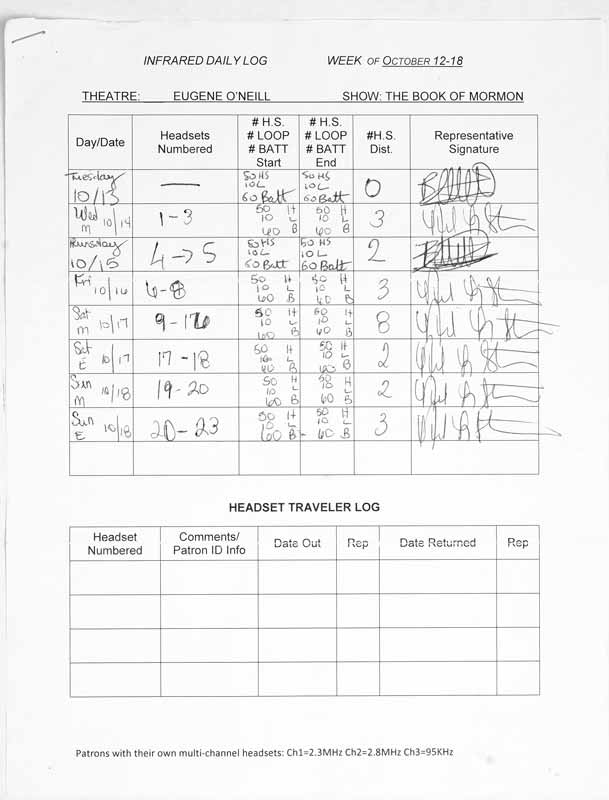 INFRARED DAILY LOG WEEK OF OCTOBER 12-18
THEATRE: EUGENE O'NEILL SHOW: THE BOOK OF MORMON
Day/Date Headsets Numbered # H.S. # LOOP # BATT Start # H.S. # LOOP # BATT End #H.S. Dist. Representative Signature
Tuesday 10/13 — 50 HS 10 L 60 Batt 50 HS 10 L 60 Batt 0
Wed M 10/14 1-3 50 H 10 L 60 B 50 H 10 L 60 B 3
Thursday 10/15 4→5 50 HS 10 L 60 Batt 50 HS 10 L 60 Batt 2
Fri 10/16 6-8 50 H 10 L 60 B 50 H 10 L 60 B 3
Sat M 10/17 9-16 50 H 10 L 60 B 50 H 10 L 60 B 8
Sat E 10/17 17-18 50 H 10 L 60 B 50 H 10 L 60 B 2
Sun M 10/18 19-20 50 H 10 L 60 B 50 H 10 L 60 B 2
Sun E 10/18 20-23 50 H 10 L 60 B 50 H 10 L 60 B 3
HEADSET TRAVELER LOG
Headset Numbered Comments/ Patron ID Info Date Out Rep Date Returned Rep
Patrons with their own multi-channel headsets: Ch1=2.3MHz Ch2=2.8MHz Ch3=95KHz